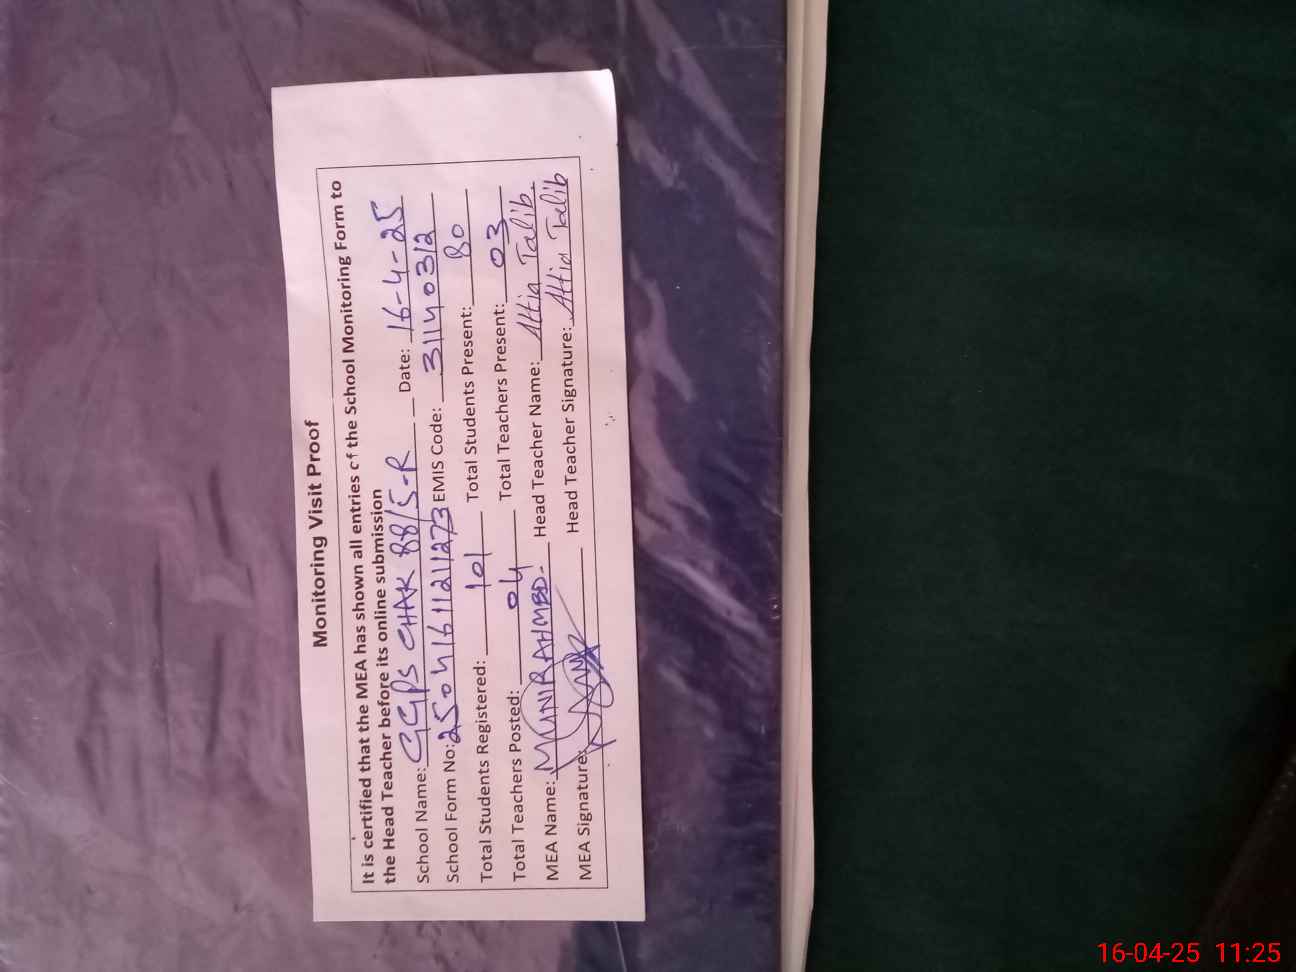 Monitoring Visit Proof
It is certified that the MEA has shown all entries of the School Monitoring Form to
the Head Teacher before its online submission
School Name: GGPS CHAK 88/5-R Date: 16-4-25
School Form No: 2504161121273 EMIS Code: 31140312
Total Students Registered: 101 Total Students Present: 80
Total Teachers Posted: 04 Total Teachers Present: 03
MEA Name: MUNIR AHMED Head Teacher Name: Attia Talib
MEA Signature: Head Teacher Signature: Attia Talib
16-04-25 11:25